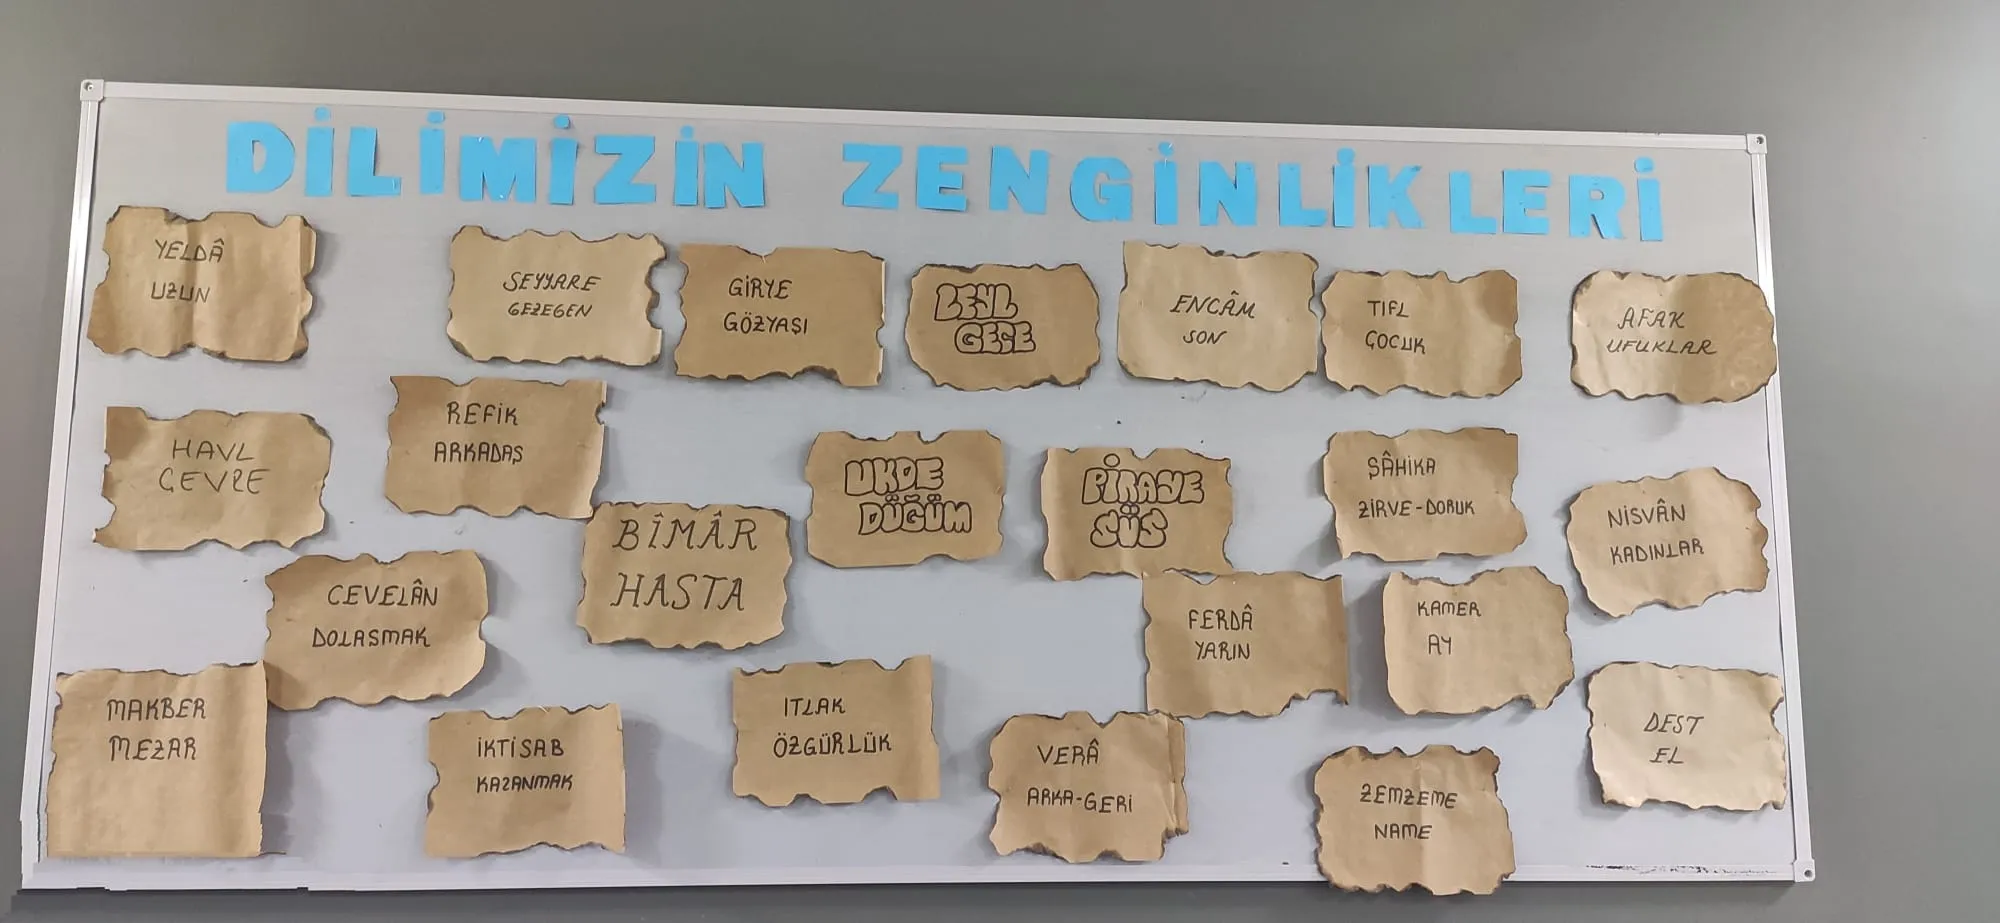 DİLİMİZİN ZENGİNLİKLERİ
YELDÂ
UZUN
SEYYARE
GEZEGEN
GİRYE
GÖZYAŞI
LEYL
GECE
ENCÂM
SON
TIFL
ÇOCUK
AFAK
UFUKLAR
HAVL
ÇEVRE
REFİK
ARKADAŞ
BÎMÂR
HASTA
UKDE
DÜĞÜM
PİRAYE
SÜS
ŞÂHİKA
ZİRVE-DORUK
NİSVÂN
KADINLAR
CEVELÂN
DOLAŞMAK
FERDÂ
YARIN
KAMER
AY
MAKBER
MEZAR
İKTİSAB
KAZANMAK
ITLAK
ÖZGÜRLÜK
VERÂ
ARKA-GERİ
ZEMZEME
NAME
DEST
EL